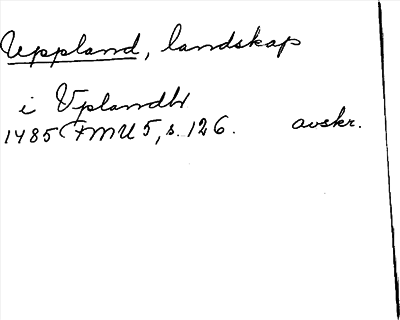 Uppland, landskap
i Vplandh
1485 FMU 5, s. 126. avskr.